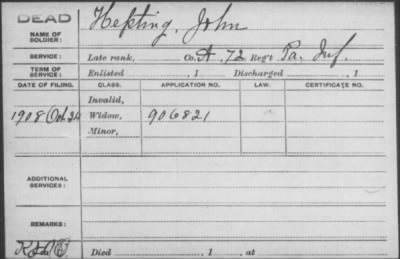 DEAD
NAME OF SOLDIER: Hepting, John
SERVICE: Late rank, Co. A, 72 Reg't Pa. Inf.
TERM OF SERVICE: Enlisted , 1 Discharged , 1
DATE OF FILING. CLASS. APPLICATION NO. LAW. CERTIFICATE NO.
Invalid,
1908 Oct 24 Widow, 906821
Minor,
ADDITIONAL SERVICES:
REMARKS:
Died , 1 , at